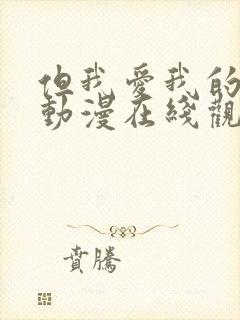 但我愛我的
動漫在綫觀
賁騰